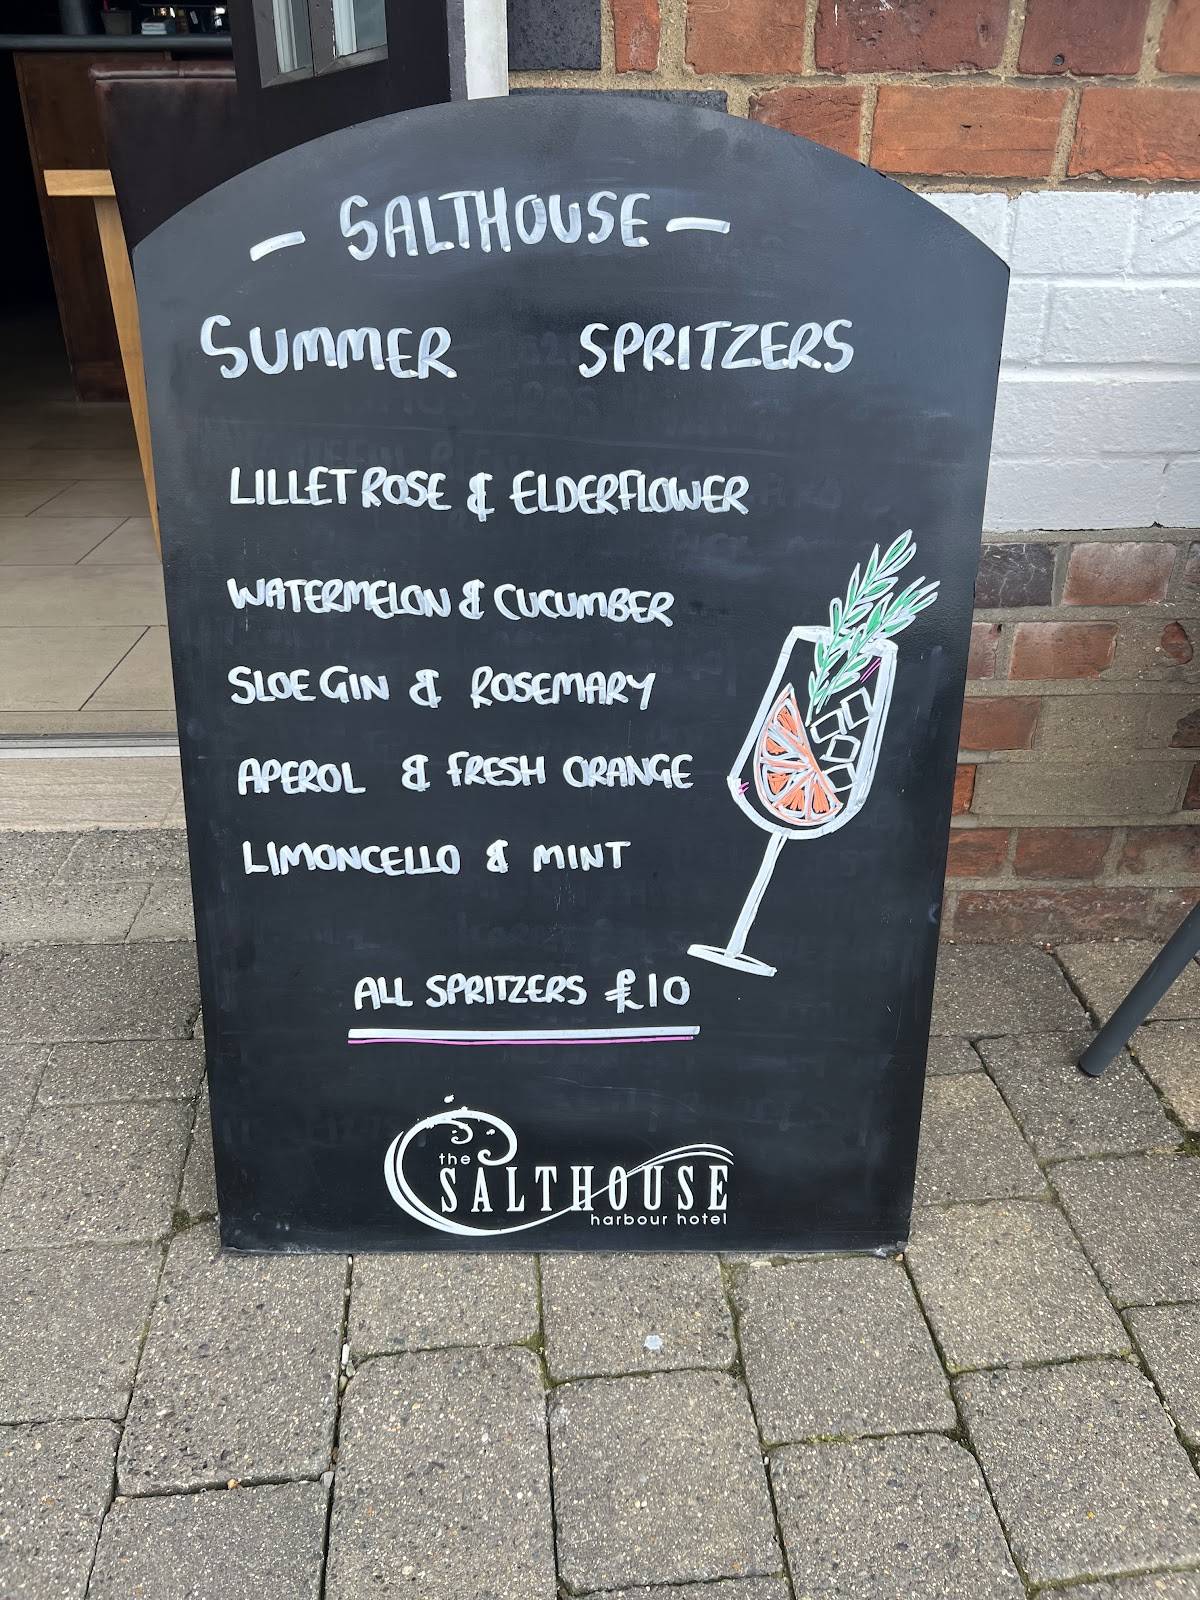 - SALTHOUSE -
SUMMER SPRITZERS
LILLET ROSE & ELDERFLOWER
WATERMELON & CUCUMBER
SLOE GIN & ROSEMARY
APEROL & FRESH ORANGE
LIMONCELLO & MINT
ALL SPRITZERS £10
the
SALTHOUSE
harbour hotel